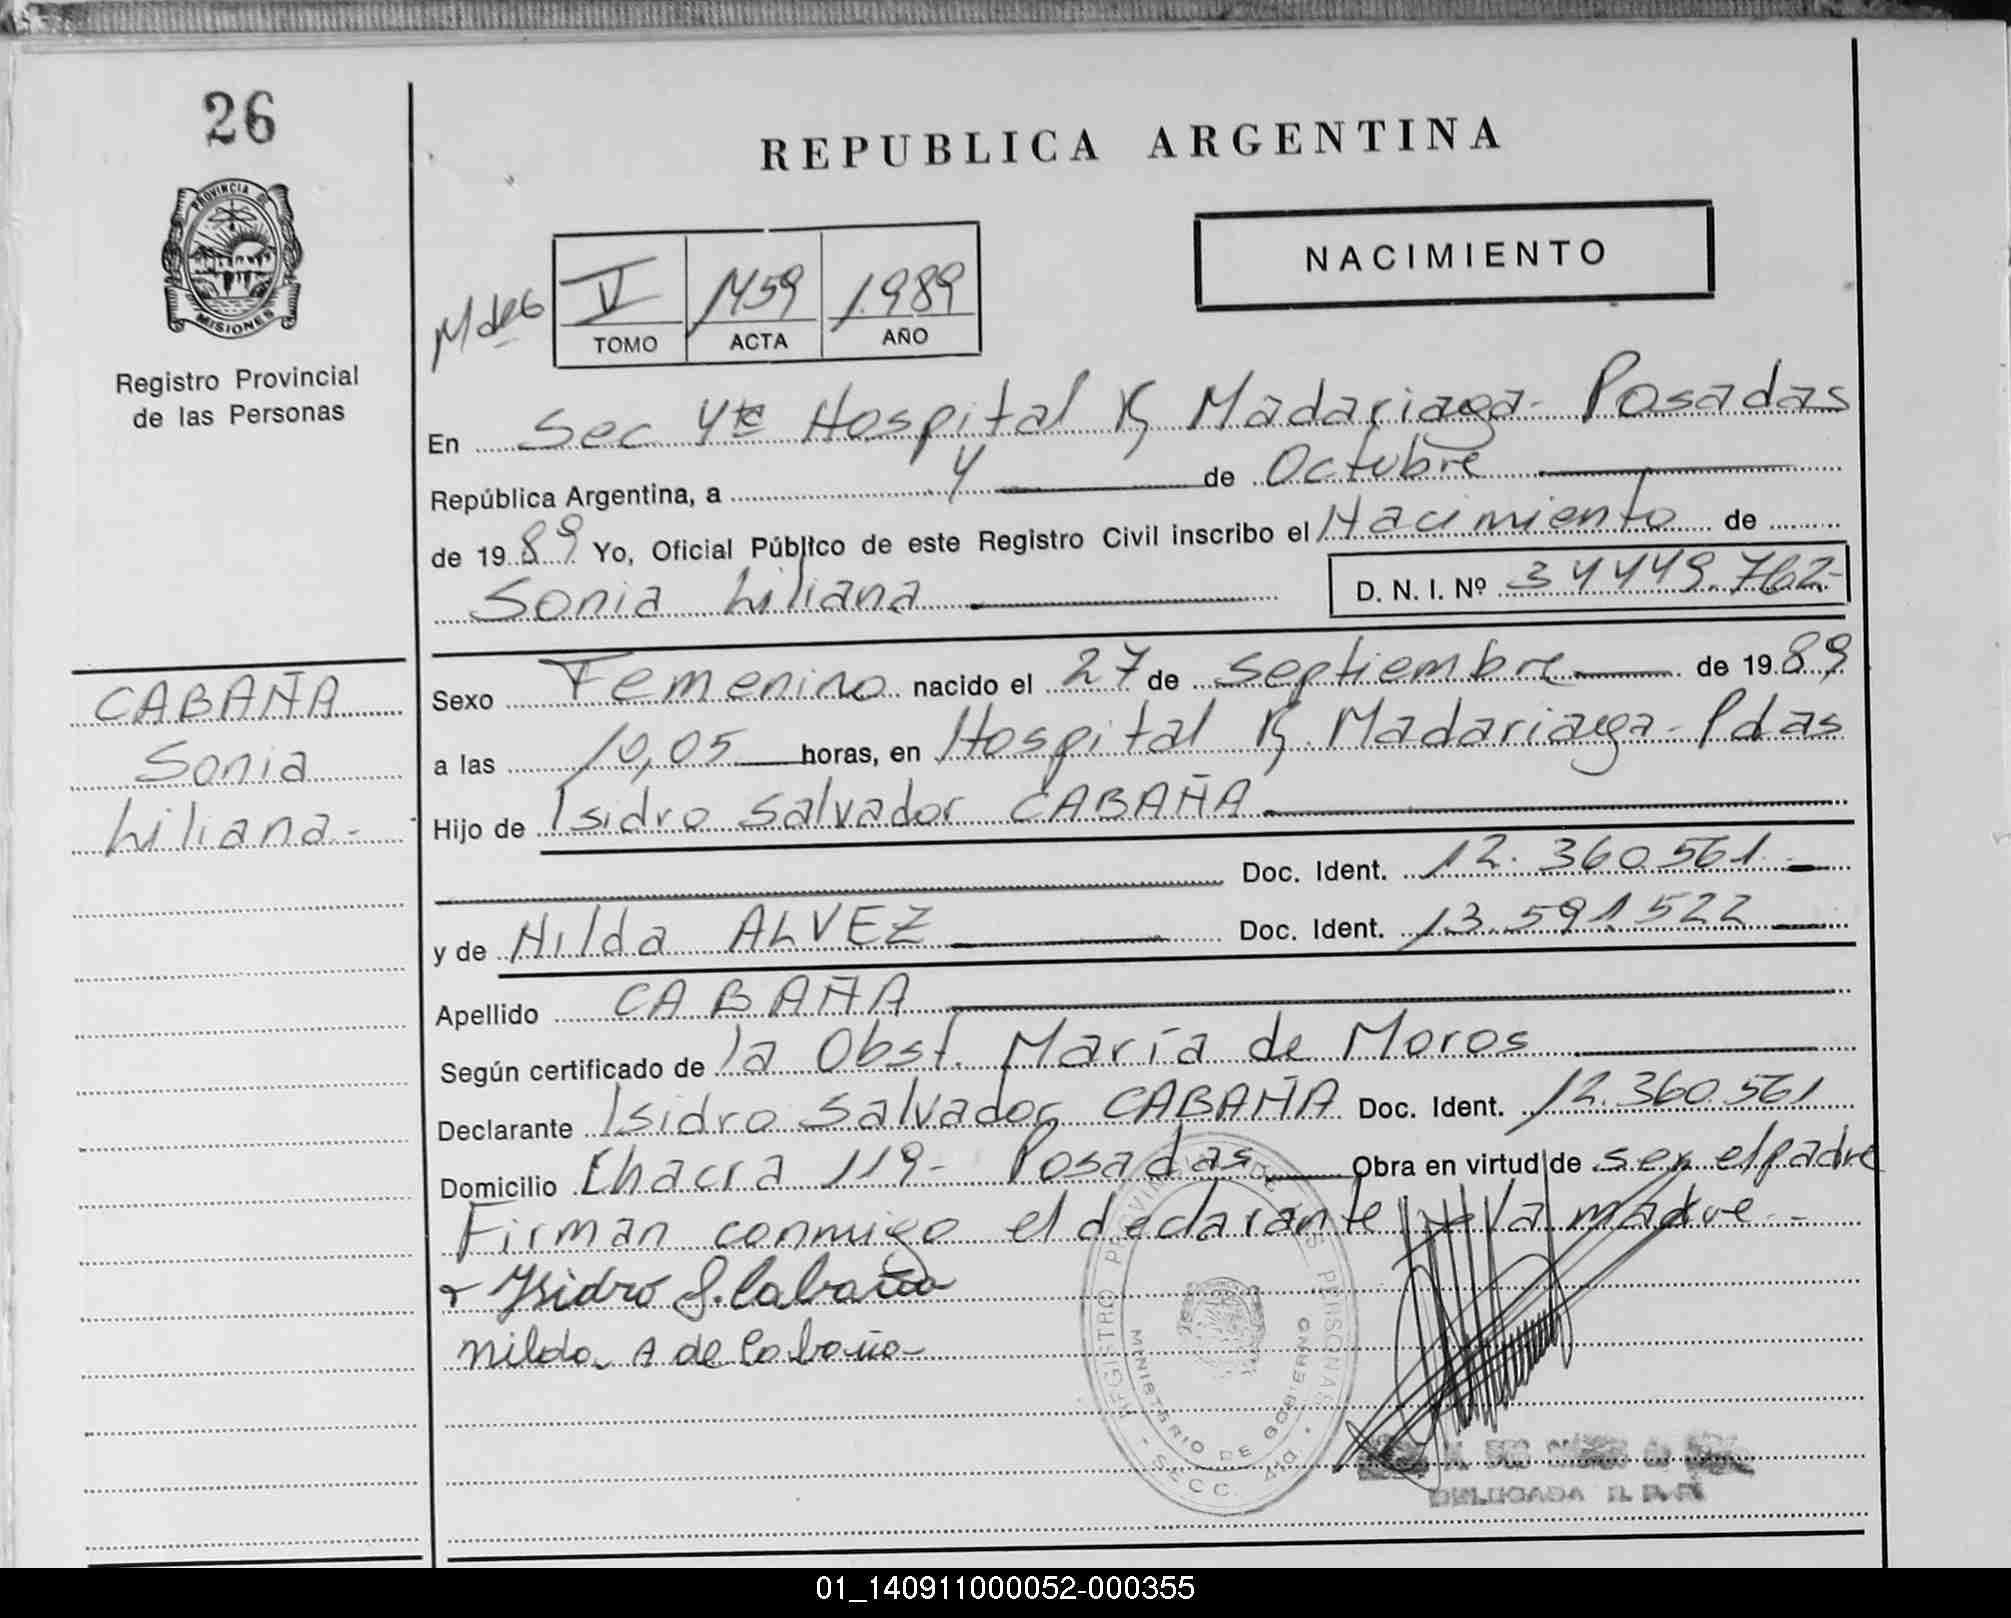 26
REPUBLICA ARGENTINA
PROVINCIA DE
MISIONES
Registro Provincial
de las Personas
Mdes
V
TOMO
1459
ACTA
1.989
AÑO
NACIMIENTO
En Sec 4ta Hospital R, Madariaga - Posadas
República Argentina, a 4 de Octubre
de 19 89 Yo, Oficial Público de este Registro Civil inscribo el Nacimiento de
Sonia Liliana D. N. I. Nº 34449.762-
CABAÑA
Sonia
Liliana.-
Sexo Femenino nacido el 27 de septiembre de 19 89
a las 10,05 horas, en Hospital R. Madariaga - Pdas
Hijo de Isidro Salvador CABAÑA
Doc. Ident. 12.360.561
y de Nilda ALVEZ Doc. Ident. 13.591.522
Apellido CABAÑA
Según certificado de la Obst. María de Moros
Declarante Isidro Salvador CABAÑA Doc. Ident. 12.360.561
Domicilio Chacra 119- Posadas Obra en virtud de ser el padre
Firman conmigo el declarante y la madre -
Isidro S. Cabaña
Nilda A de Cabaña
REGISTRO PROVINCIAL DE LAS PERSONAS
MINISTERIO DE GOBIERNO
SECC. 4ta
DELEGADA R. P. P.
01_140911000052-000355